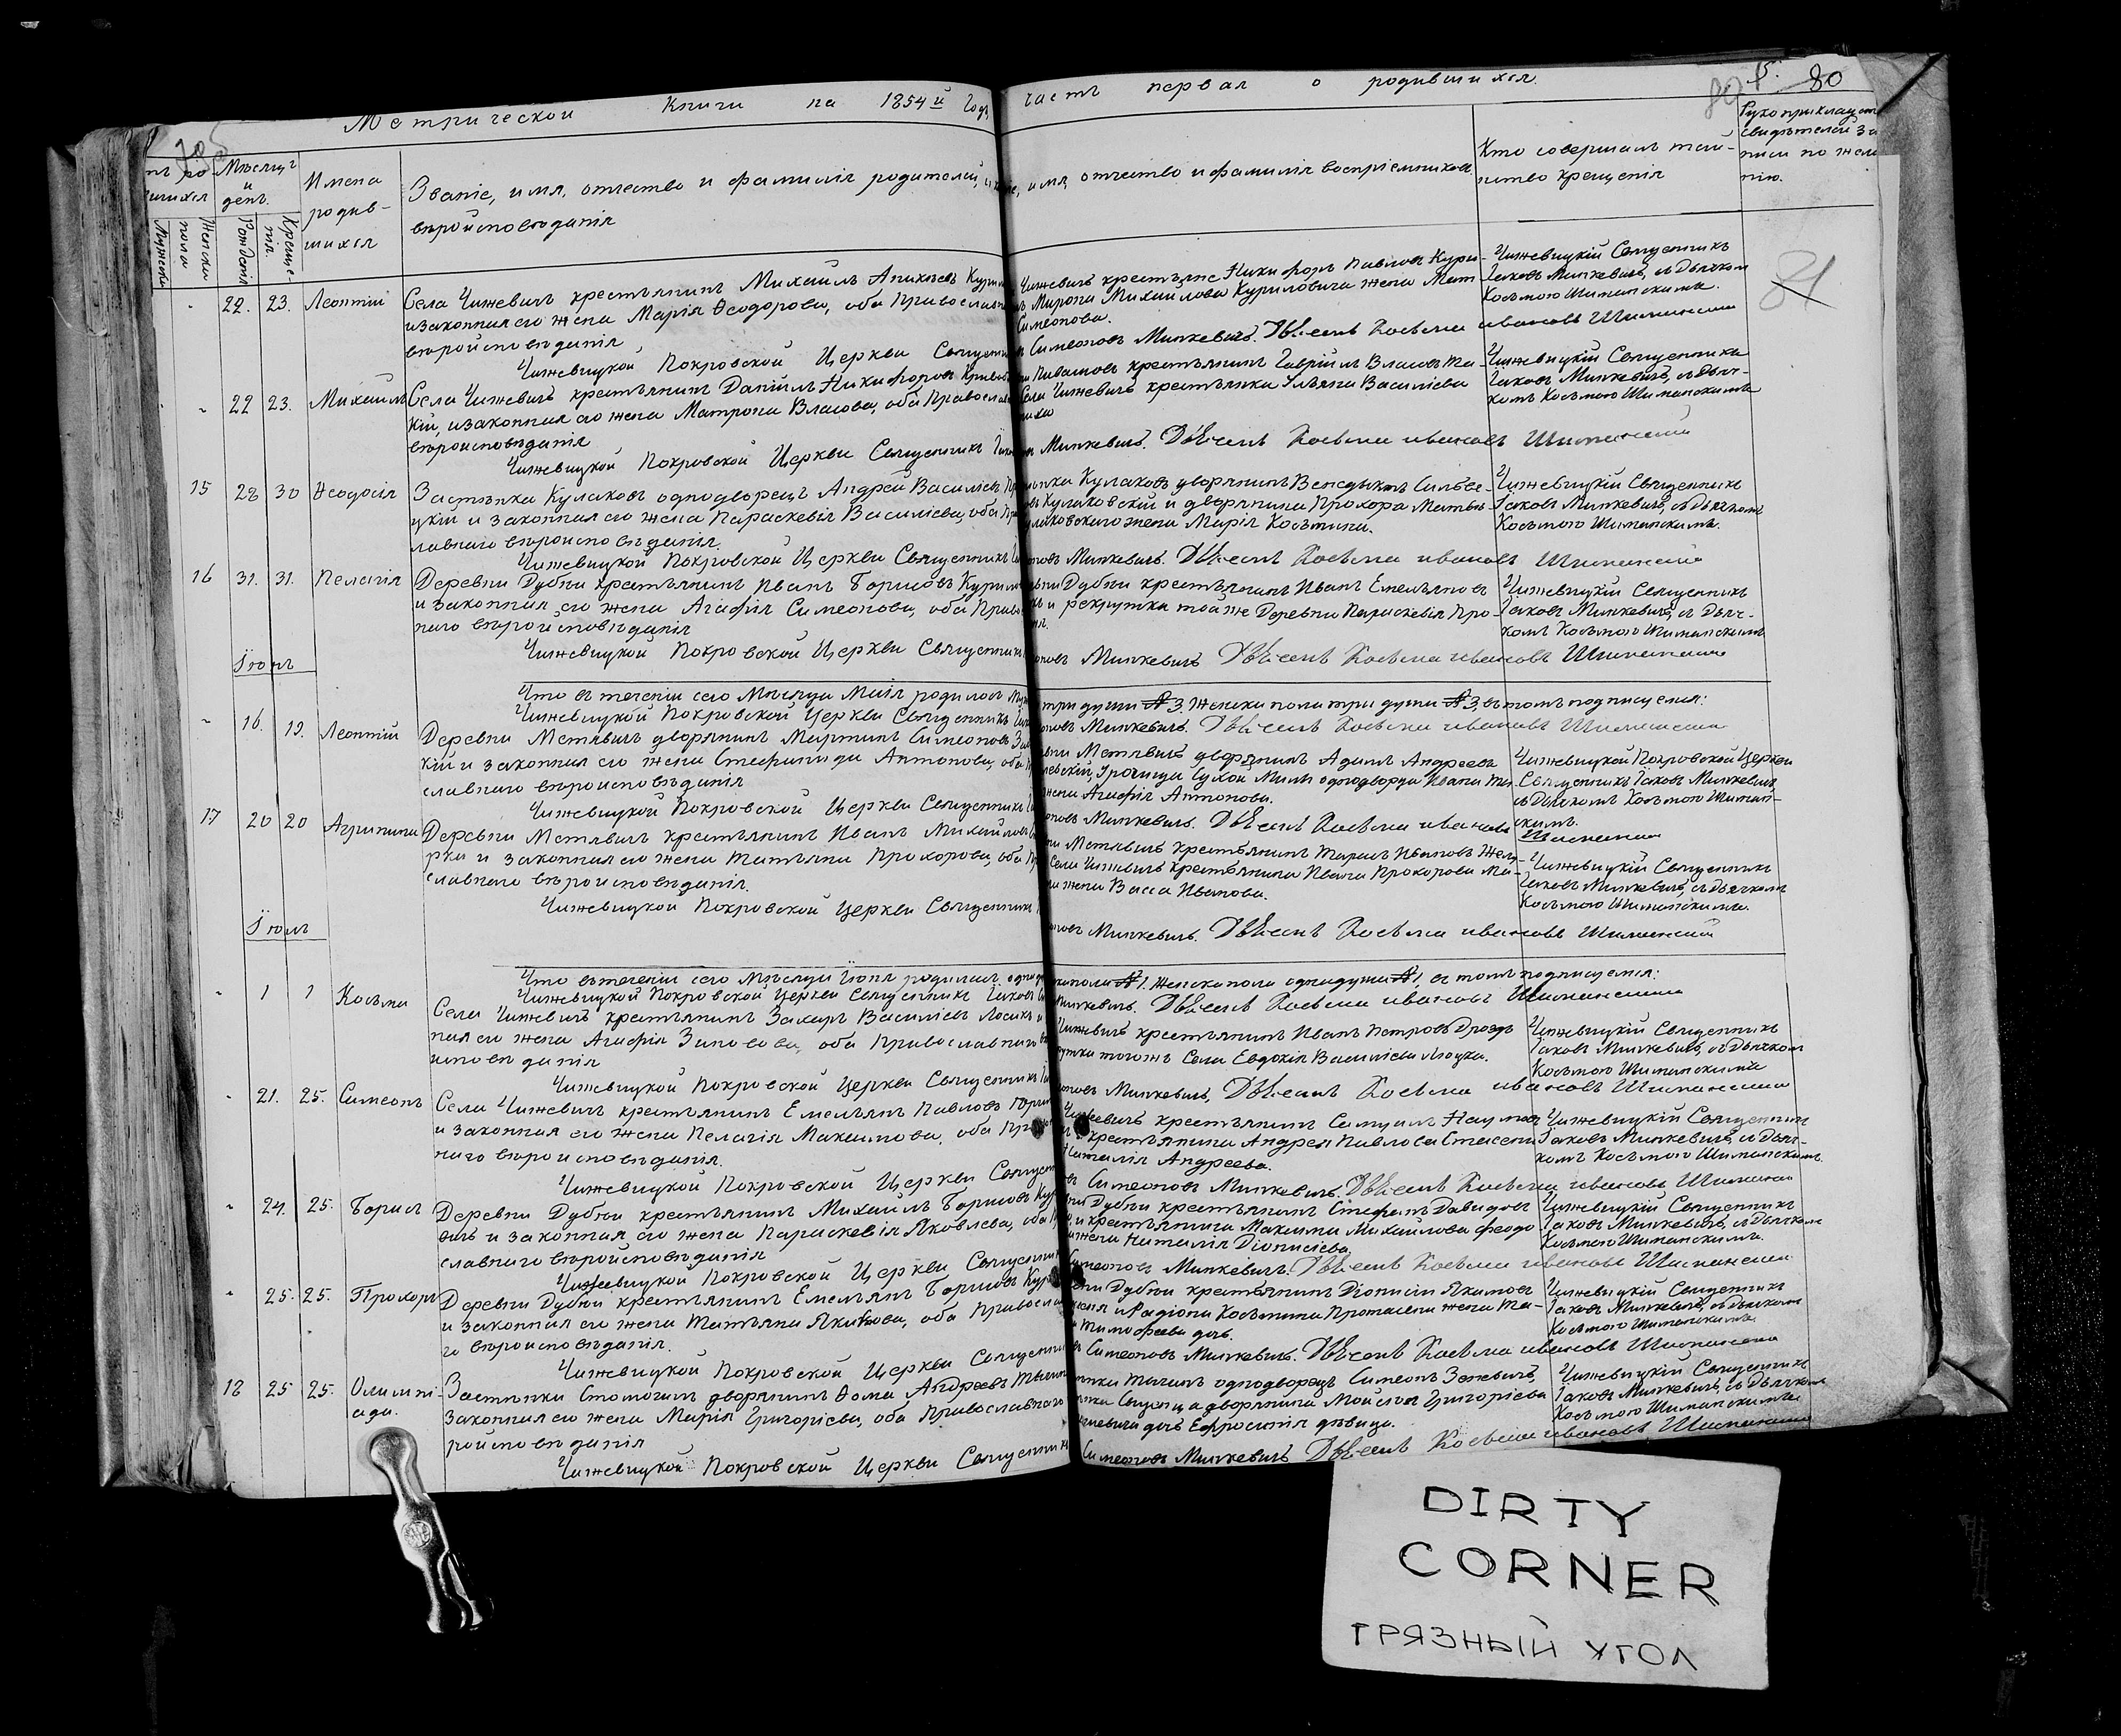 Метрической Книги на 1854й Годъ часть первая о родившихся.
80 80
Мѣсяцъ и день.
Рожденія
Крещенія.
Мужеска
Женска пола
Имена родившихся
Званіе, имя, отчество и фамилія родителей, и
вѣроисповѣданія
имя, отчество и фамилія воспріемниковъ
Кто совершалъ таинство крещенія
Рукоприкладст
свидѣтелей за
писи по жела
нію.
81
22. 23. Леонтій
Села Чижевичъ крестьянинъ Михаилъ
и законная его жена Марія Ѳеодорова, оба Православн
вѣроисповѣданія
Чижевичъ крестьяне Никифоръ Павловъ Кури-
Мирона Михайлова Куриловича жена Мат
Симеонова.
Чижевицкій Священникъ
Іаковъ Минкевичъ, съ Дьячком
Косьмою Шиманскимъ.
Чижевицкой Покровской Церкви Священ
Симеоновъ Минкевичъ. Косьма Ивановъ Шиманскій
22 23. Михаилъ
Села Чижевичъ крестьянинъ Даніилъ Никифоровъ
кій, и законная его жена Матрона Власова, оба Правосла
вѣроисповѣданія
крестьянинъ Гавріилъ Власовъ
Села Чижевичъ крестьянка Ульяна Василіева
Чижевицкій Священникъ
Іаковъ Минкевичъ, съ Дьяч-
комъ Косьмою Шиманскимъ
Чижевицкой Покровской Церкви Священникъ
Минкевичъ. Косьма Ивановъ Шиманскій
15 28 30 Ѳеодосія
Застѣнка Кулаковъ однодворецъ Андрей Василіевъ
цкій и законная его жена Параскевія Василіева, оба Пра
лавнаго вѣроисповѣданія
Кулаковъ дворянинъ Венедиктъ Сильве-
Кулаковскій и дворянина Прохора Матвѣ
улаковскаго жена Марія Косьмина.
Чижевицкій Священникъ
Іаковъ Минкевичъ, съ Дьячкомъ
Косьмою Шиманскимъ.
Чижевицкой Покровской Церкви Священникъ
оновъ Минкевичъ. Косьма Ивановъ Шиманскій
16 31. 31. Пелагія
Деревни Дубеи крестьянинъ Иванъ Борисовъ Курил
и законная его жена Агафія Симеонова, оба Право
наго вѣроисповѣданія
Дубеи крестьянинъ Иванъ Емельянов
и рекрутка той же Деревни Параскевія Про-
Чижевицкій Священникъ
Іаковъ Минкевичъ, съ Дьяч-
комъ Косьмою Шиманскимъ
Чижевицкой Покровской Церкви Священникъ
оновъ Минкевичъ Косьма Ивановъ Шиманскій
Іюнь
Что въ теченіи сего Мѣсяца Маія родилось
три души № 3. Женска пола три души № 3, въ томъ подписуемся:
Чижевицкой Покровской Церкви Священникъ
оновъ Минкевичъ. Косьма Ивановъ Шиманскій
16. 19. Леонтій
Деревни Метявичъ дворянинъ Мартинъ Симеоновъ
кій и законная его жена Стефанида Антонова, оба
славнаго вѣроисповѣданія
Метявичъ дворянинъ Адамъ Андреевъ
Урочища Сухой Милъ однодворца Ивана
жена Агафія Антонова.
Чижевицкой Покровской Церкви
Священникъ Іаковъ Минкевичъ
съ Дьячкомъ Косьмою Шиман-
скимъ.
Чижевицкой Покровской Церкви Священникъ
оновъ Минкевичъ. Косьма Иванов Шиманскій
17 20 20 Агрипина
Деревни Метявичъ крестьянинъ Иванъ Михайловъ
рка и законная его жена Татьяна Прохорова, оба Пр
славнаго вѣроисповѣданія.
Метявичъ крестьянинъ Тарасъ Ивановъ
Села Чижевичъ крестьянина Ивана Прохорова
жена Васса Иванова.
Чижевицкій Священникъ
Іаковъ Минкевичъ, съ Дьячкомъ
Косьмою Шиманскимъ.
Чижевицкой Покровской Церкви Священникъ
оновъ Минкевичъ. Косьма Ивановъ Шиманскій
Іюль
Что въ теченіи сего Мѣсяца Іюня родилась одна
пола № 1. Женска пола одна душа № 1, въ томъ подписуемся:
Чижевицкой Покровской Церкви Священникъ Іаковъ
Минкевичъ. Косьма Ивановъ Шиманскій
1 1 Косьма
Села Чижевичъ крестьянинъ Захаръ Василіевъ Лосикъ и
ная его жена Агафія Зиновова, оба Православнаго
исповѣданія
Чижевичъ крестьянинъ Иванъ Петровъ Дроздъ
рутка тогожъ Села Евдокія Василіева
Чижевицкій Священникъ
Іаковъ Минкевичъ, съ Дьячком
Косьмою Шиманскимъ
Чижевицкой Покровской Церкви Священникъ
оновъ Минкевичъ, Косьма Ивановъ Шиманскій
21. 25. Симеонъ
Села Чижевичъ крестьянинъ Емельянъ Павловъ
и законная его жена Пелагія Максимова, оба Пра
наго вѣроисповѣданія.
Чижевичъ крестьянинъ Самуилъ Наумов
крестьянина Андрея Павлова Стасеня
Наталія Андреева.
Чижевицкій Священник
Іаковъ Минкевичъ, съ Дьяч-
комъ Косьмою Шиманскимъ.
Чижевицкой Покровской Церкви Священ
Симеоновъ Минкевичъ. Косьма Ивановъ Шиманскій
24. 25. Борисъ
Деревни Дубеи крестьянинъ Михаилъ Борисовъ Кур
вичъ и законная его жена Параскевія Яковлева, оба
славнаго вѣроисповѣданія
Дубеи крестьянинъ Стефанъ Давидовъ
и крестьянина Максима Михайлова Феодо
жена Наталія Діонисіева.
Чижевицкій Священникъ
Іаковъ Минкевичъ, съ Дьячком
Косьмою Шиманскимъ.
Чижевицкой Покровской Церкви Священник
Симеоновъ Минкевичъ. Косьма Ивановъ Шиманскій
25. 25. Прохоръ
Деревни Дубеи крестьянинъ Емельянъ Борисовъ Кур
и законная его жена Татьяна Якимова, оба Православ
го вѣроисповѣданія.
Дубеи крестьянинъ Діонисій Якимовъ
и Радіона Косьмина Протасени жена Та-
Тимофеева дочь.
Чижевицкій Священникъ
Іаковъ Минкевичъ, съ Дьячком
Косьмою Шиманскимъ.
Чижевицкой Покровской Церкви Священник
Симеоновъ Минкевичъ. Косьма Ивановъ Шиманскій
18 25 25. Олимпі-
ада.
Застѣнка дворянинъ Ѳома Андреевъ
законная его жена Марія Григоріева, оба Православнаго
роисповѣданія
однодворецъ Симеонъ
дворянина Моисея Григоріева
дочь Ефросинія дѣвица.
Чижевицкій Священникъ
Іаковъ Минкевичъ, съ Дьячком
Косьмою Шиманскимъ
Чижевицкой Покровской Церкви Священник
Симеоновъ Минкевичъ Косьма Ивановъ Шиманскій
DIRTY
CORNER
ГРЯЗНЫЙ УГОЛ